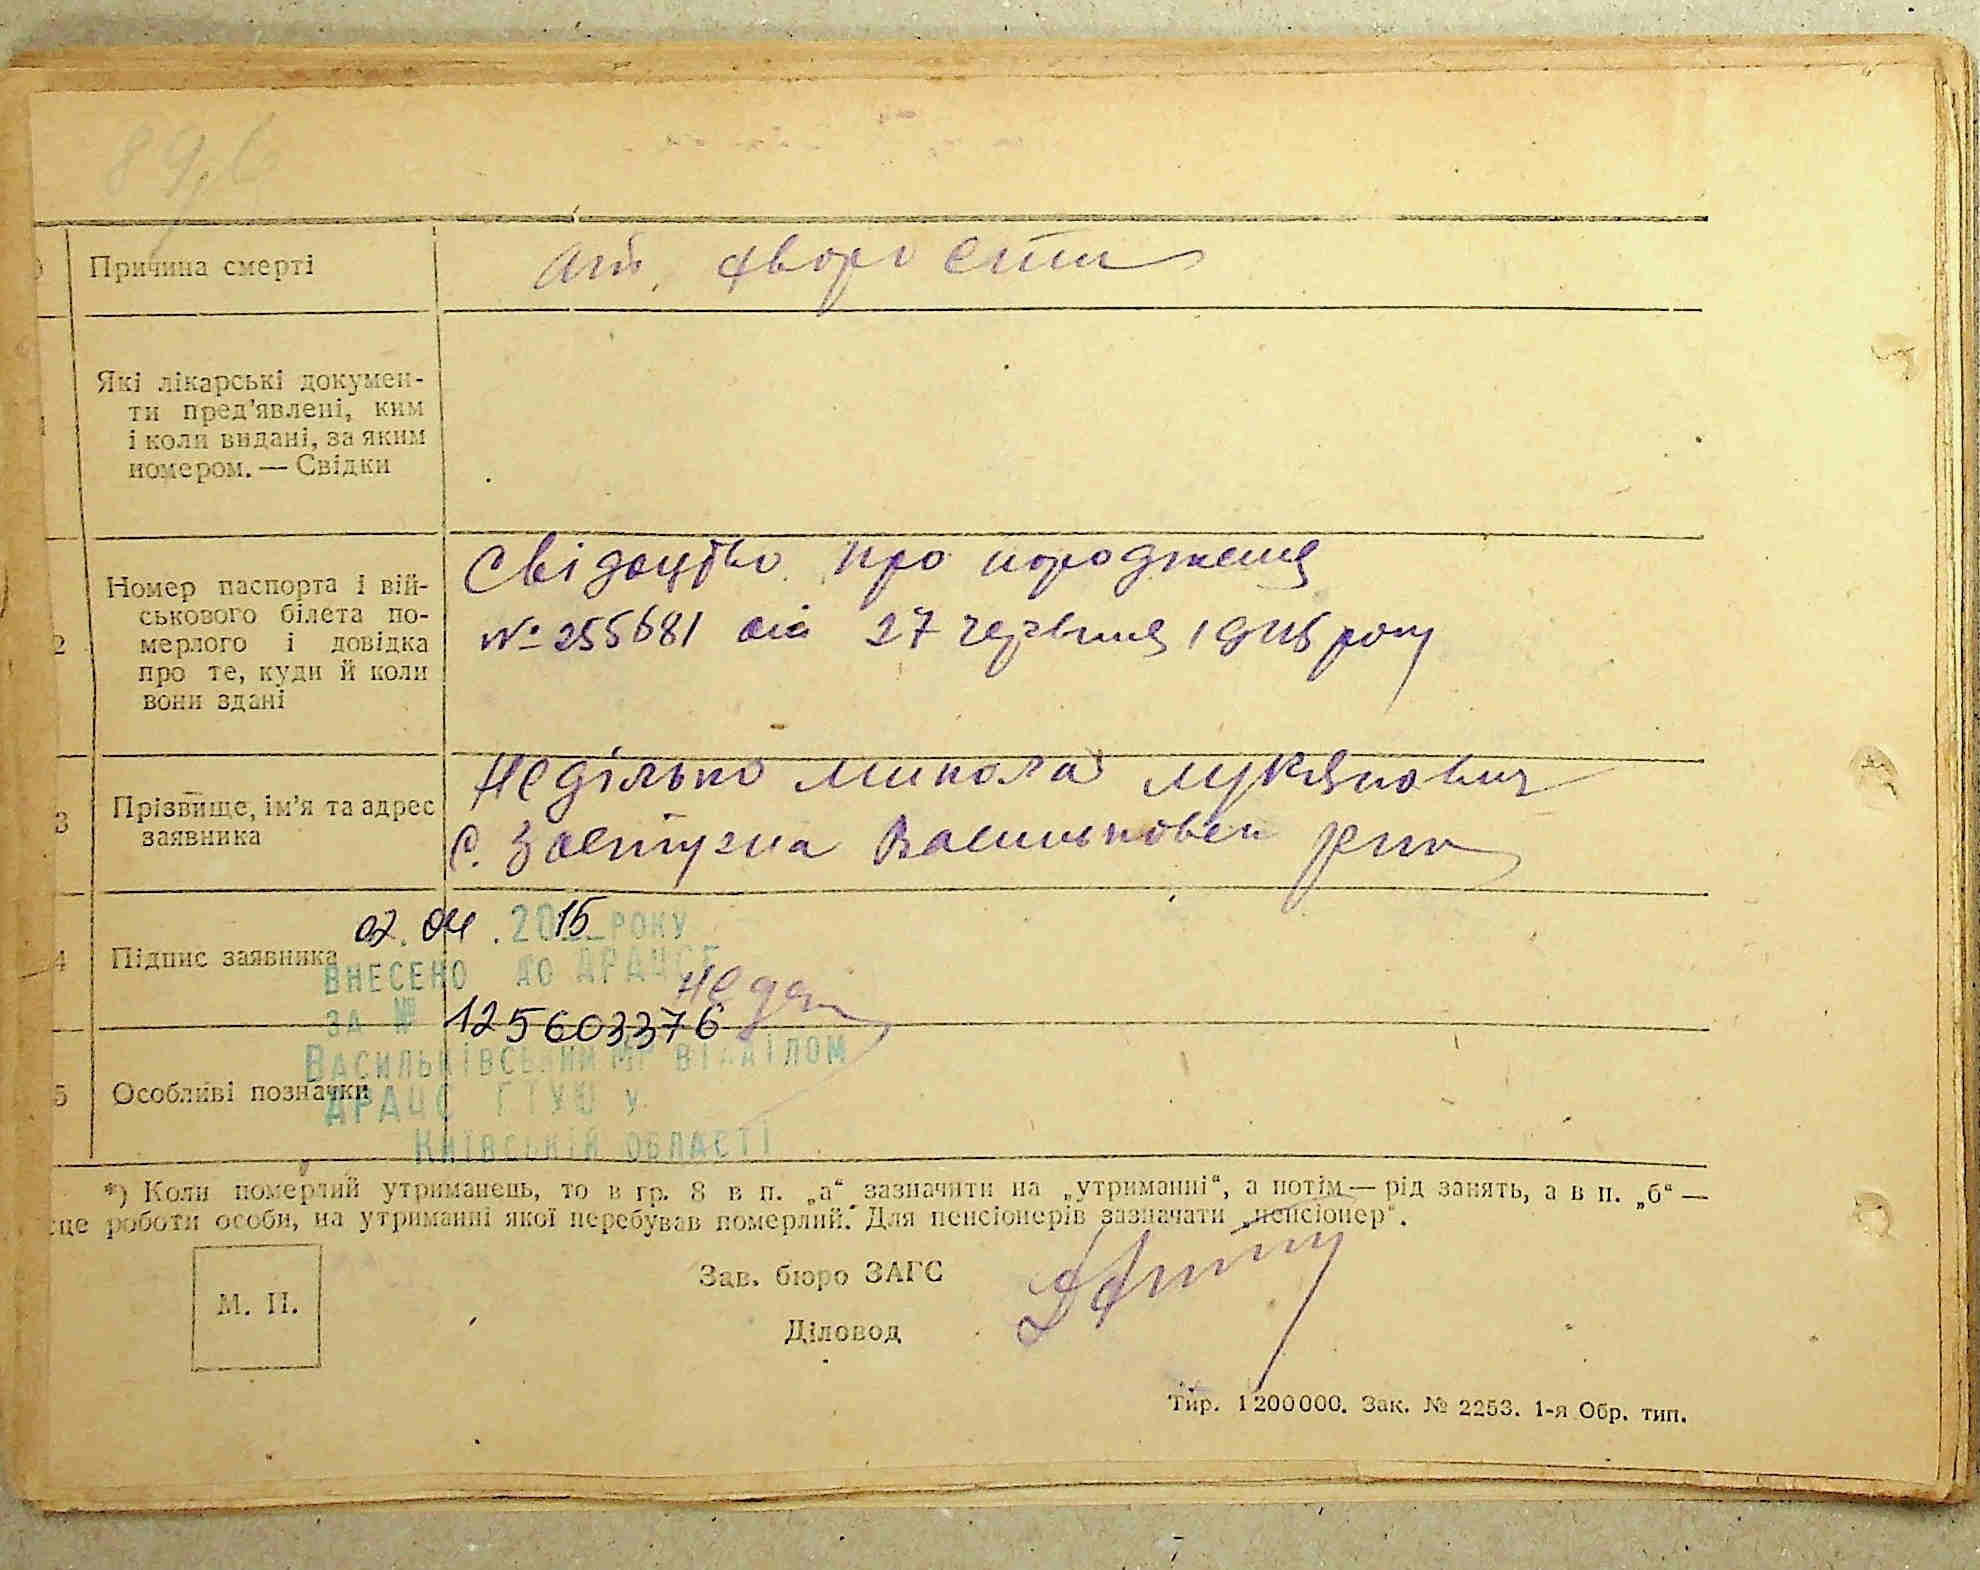 Причина смерті
Які лікарські докумен-
ти пред'явлені, ким
і коли видані, за яким
номером. — Свідки
2
Номер паспорта і вій-
ськового білета по-
мерлого і довідка
про те, куди й коли
вони здані
Свідоцтво про народження
№ 255681 від 27 червня 1946 року
3
Прізвище, ім'я та адрес
заявника
Неділько Микола Лукянович
с. Застугна Васильковск р-на
4
Підпис заявника
Нед
02.04.2015 РОКУ
ВНЕСЕНО ДО ДРАЦСГ
ЗА № 125603376
ВАСИЛЬКІВСЬКИМ МР ВІДДІЛОМ
ДРАЦС ГТУЮ У
КИЇВСЬКІЙ ОБЛАСТІ
5
Особливі позначки
*) Коли померлий утриманець, то в гр. 8 в п. „а“ зазначити на „утриманні“, а потім — рід занять, а в п. „б“ —
сце роботи особи, на утриманні якої перебував померлий. Для пенсіонерів зазначати „пенсіонер“.
М. П.
Зав. бюро ЗАГС
Діловод
Тир. 1200000. Зак. № 2253. 1-я Обр. тип.